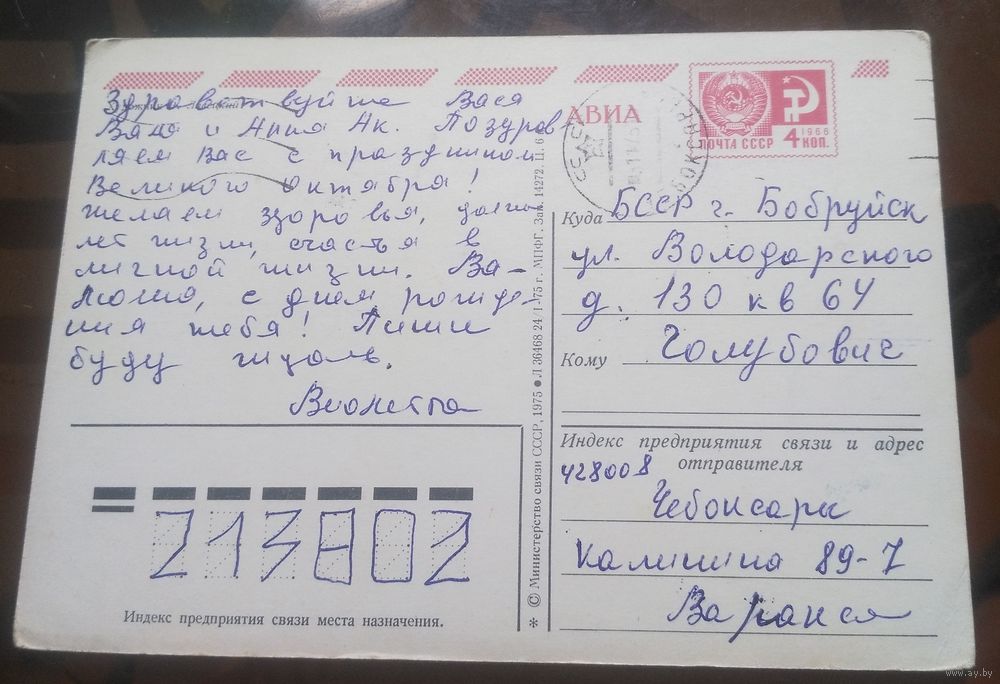 Здравствуйте Вася
Ваня и Анна Ак. Поздрав
ляем Вас с праздником
Великого октября!
желаем здоровья, долгих
лет жизни, счастья в
личной жизни. Ва-
люша, с днем рожде-
ния тебя! Пиши
буду ждать.
Виолетта
АВИА
1966
ПОЧТА СССР 4 КОП.
Куда БССР г. Бобруйск
ул. Володарского
д. 130 кв 64
Кому Голубович
Индекс предприятия связи и адрес
отправителя
428008
Чебоксары
Калинина 89-7
213802
Индекс предприятия связи места назначения.
* © Министерство связи СССР, 1975 ● Л 36468 24/I-75 г. МПФГ. Зак. 14272. Ц. 6
www.ay.by